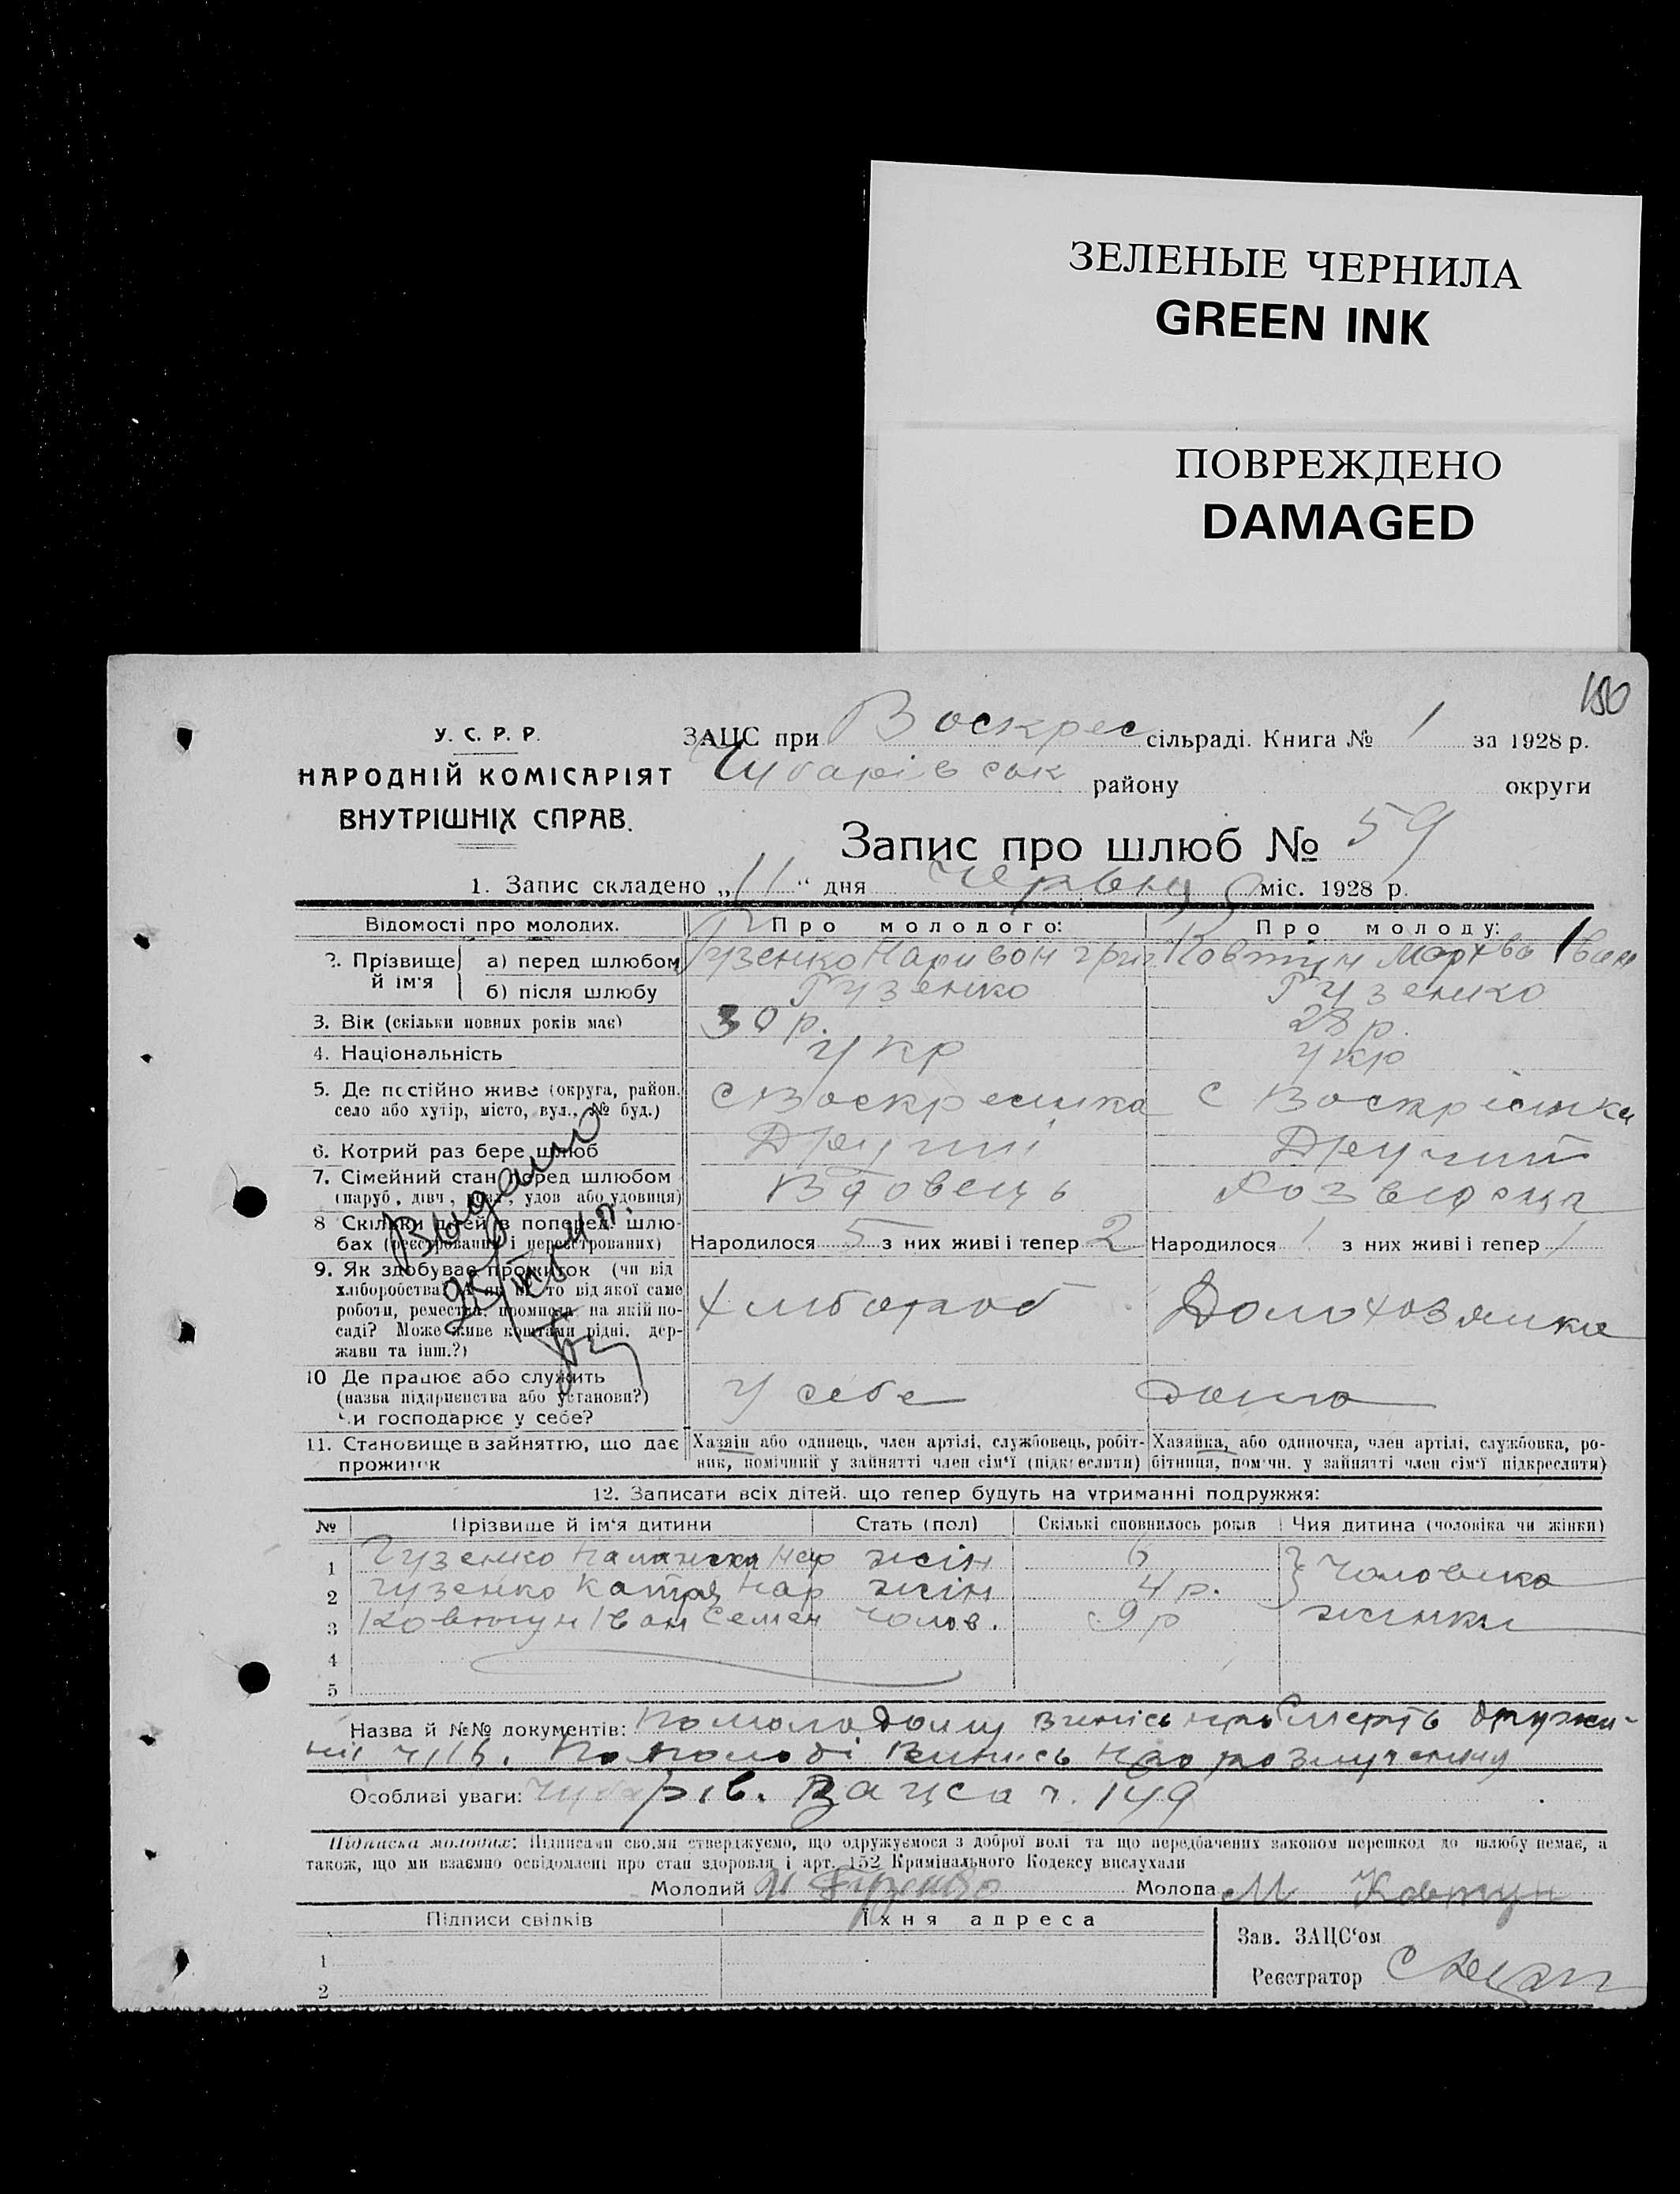 ЗЕЛЕНЫЕ ЧЕРНИЛА
GREEN INK
ПОВРЕЖДЕНО
DAMAGED
150
У. С. Р. Р.
НАРОДНІЙ КОМІСАРІЯТ
ВНУТРІШНІХ СПРАВ.
ЗАЦС при Воскрес сільраді. Книга № 1 за 1928 р.
Чубарівськ району округи
Запис про шлюб № 59
1. Запис складено „11“ дня червня міс. 1928 р.
Відомості про молодих. Про молодого: Про молоду:
2. Прізвище й ім'я а) перед шлюбом Гузенко Наривон Григ Ковтун Марфа Іван
б) після шлюбу Гузенко Гузенко
3. Вік (скільки повних років має) 30 р. 28 р.
4. Національність укр укр
5. Де постійно живе (округа, район, село або хутір, місто, вул., № буд.) с Воскресенка с Воскрісенка
6. Котрий раз бере шлюб Другий Другий
7. Сімейний стан перед шлюбом (паруб., дівч., розв., удов або удовиця) Вдовець Розведена
8 Скільки дітей з поперед. шлюбах (реєстрованих і нереєстрованих) Народилося 5 з них живі і тепер 2 Народилося 1 з них живі і тепер 1
9. Як здобуває прожиток (чи від хліборобства? А як ні, то від якої саме роботи, ремества, промисла, на якій посаді? Може живе коштами рідні, держави та інш.?) Хлібороб Домохозяйка
10 Де працює або служить (назва підприємства або установи?) Чи господарює у себе? У себе дома
11. Становище в зайняттю, що дає прожиток Хазяїн або одинець, член артілі, службовець, робітник, помічний у зайнятті член сім'ї (підкреслити) Хазяйка, або одиночка, член артілі, службовка, робітниця, помічн. у зайнятті член сім'ї підкреслити)
Видано
12. Записати всіх дітей, що тепер будуть на утриманні подружжя:
№ Прізвище й ім'я дитини Стать (пол) Скількі сповнилось років Чия дитина (чоловіка чи жінки)
1 Гузенко Нар жін 6 Чоловіка
2 Гузенко Катря Нар жін 4 р.
3 Ковтун Іван Семен чолов. 9 р жінки
4
5
Назва й №№ документів: По молодому випись про смерть дружини По молоді Випись про розлучення
Особливі уваги: Чубарів. Зацса ч. 149
Підписка молодих: Підписами своїми стверджуємо, що одружуємося з доброї волі та що передбачених законом перешкод до шлюбу немає, а
також, що ми взаємно освідомлені про стан здоровля і арт. 152 Кримінального Кодексу вислухали
Молодий Н Гузенко Молода М Ковтун
Підписи свідків Їхня адреса
Зав. ЗАЦС'ом
1
Реєстратор
2